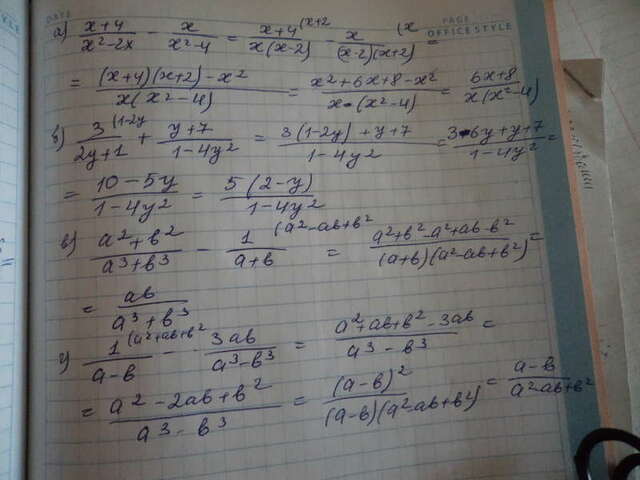 DATE
PAGE
OFFICE STYLE
а) (x+4)/(x²-2x) - x/(x²-4) = (x+4 (x+2)/(x(x-2)) - (x (x)/((x-2)(x+2)) =
= ((x+4)(x+2)-x²)/(x(x²-4)) = (x²+6x+8-x²)/(x·(x²-4)) = (6x+8)/(x(x²-4))
б) (3 (1-2y)/(2y+1) + (y+7)/(1-4y²) = (3(1-2y)+y+7)/(1-4y²) = (3-6y+y+7)/(1-4y²) =
= (10-5y)/(1-4y²) = (5(2-y))/(1-4y²)
в) (a²+b²)/(a³+b³) - (1 (a²-ab+b²)/(a+b) = (a²+b²-a²+ab-b²)/((a+b)(a²-ab+b²)) =
= ab/(a³+b³)
г) (1 (a²+ab+b²)/(a-b) - 3ab/(a³-b³) = (a²+ab+b²-3ab)/(a³-b³) =
= (a²-2ab+b²)/(a³-b³) = (a-b)²/((a-b)(a²-ab+b²)) = (a-b)/(a²-ab+b²)